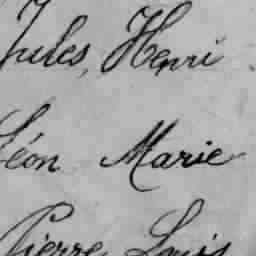 Jules, Henri
Léon Marie
Pierre Louis